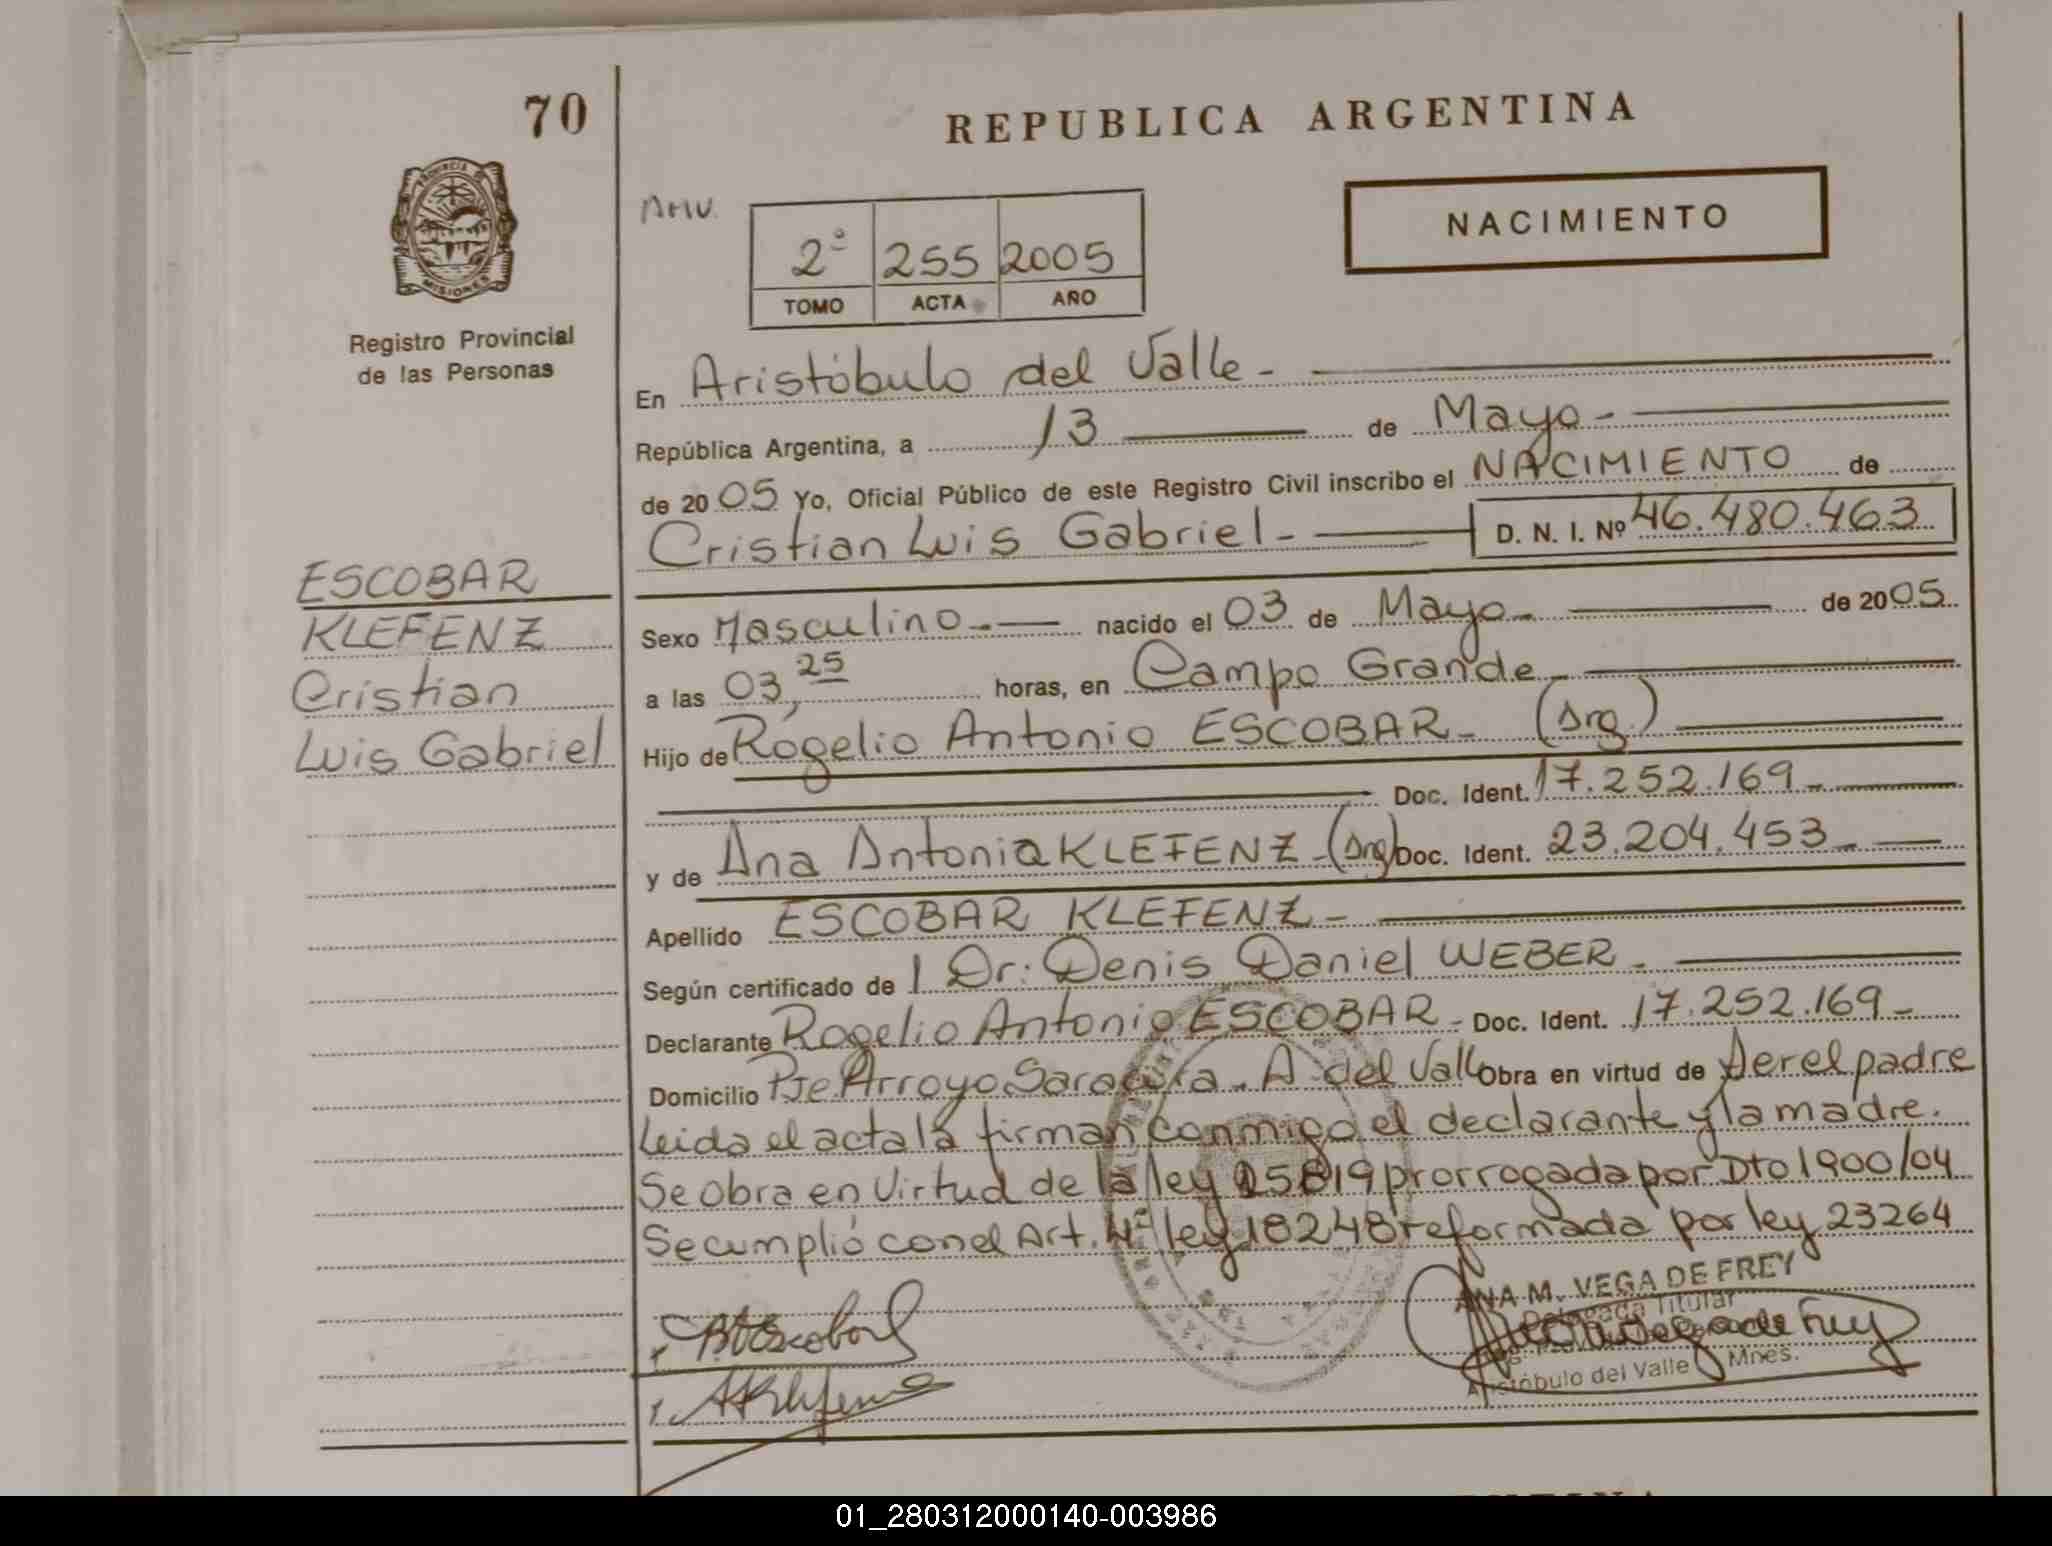 70
REPUBLICA ARGENTINA
PROVINCIA DE
MISIONES
Registro Provincial
de las Personas
2º 255 2005
TOMO ACTA AÑO
NACIMIENTO
En Aristóbulo del Valle -
República Argentina, a 13 de Mayo -
de 2005 Yo, Oficial Público de este Registro Civil inscribo el NACIMIENTO de
Cristian Luis Gabriel - D. N. I. Nº 46.480.463
ESCOBAR
KLEFENZ
Cristian
Luis Gabriel
Sexo Masculino - nacido el 03 de Mayo - de 2005
a las 03,25 horas, en Campo Grande -
Hijo de Rogelio Antonio ESCOBAR - (Arg.)
Doc. Ident. 17.252.169 -
y de Ana Antonia KLEFENZ - (Arg) Doc. Ident. 23.204.453 -
Apellido ESCOBAR KLEFENZ -
Según certificado de l Dr: Denis Daniel WEBER -
Declarante Rogelio Antonio ESCOBAR - Doc. Ident. 17.252.169 -
Domicilio Pje. Arroyo - A. del Valle Obra en virtud de ser el padre
Leida el acta la firman conmigo el declarante y la madre.
Se obra en virtud de la ley 25819 prorrogada por Dto 1900/04
Se cumplió con el Art. 4º ley 18248 reformada por ley 23264
ANA M. VEGA DE FREY
Delegada Titular
Aristóbulo del Valle Mnes.
01_280312000140-003986